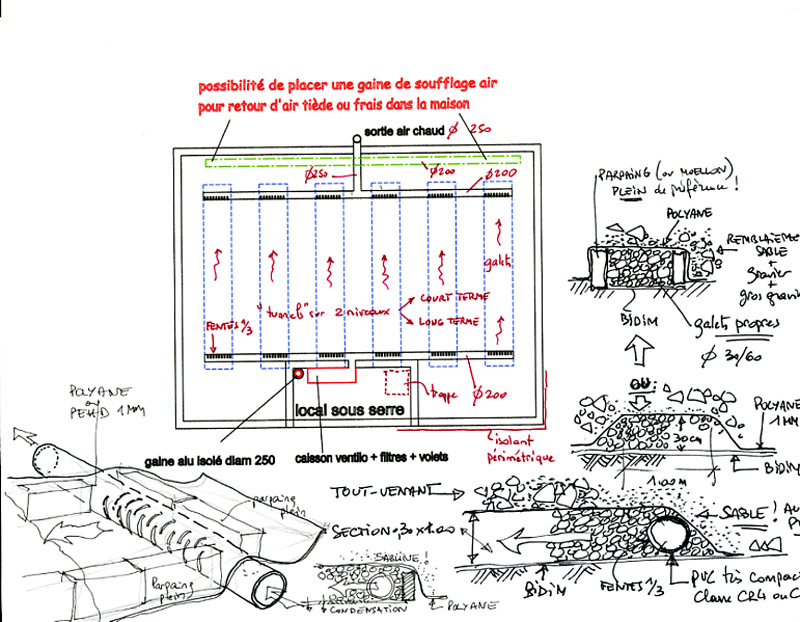 possibilité de placer une gaine de soufflage air
pour retour d'air tiède ou frais dans la maison
sortie air chaud Ø 250
Ø250
Ø200
Ø200
galets
"tunnels" sur 2 niveaux
COURT TERME
LONG TERME
FENTES 1/3
trappe
Ø200
local sous serre
gaine alu isolé diam 250
caisson ventilo + filtres + volets
isolant
périmétrique
PARPAING (ou MOELLON)
PLEIN de préférence !
POLYANE
REMBLAIEME
SABLE
+
Gravier
+
gros gravi
BIDIM
galets propres
Ø 30/60
OU:
POLYANE
1MM
30cm
BIDIM
1.00M
POLYANE
PEHD 1MM
parpaing
plein
Parpaing
plein
TOUT-VENANT
SECTION: 30x1.00
SABLE ! Au
BIDIM
FENTES 1/3
PVC très compac
Classe CR4 ou C
SABLINE !
CONDENSATION
POLYANE